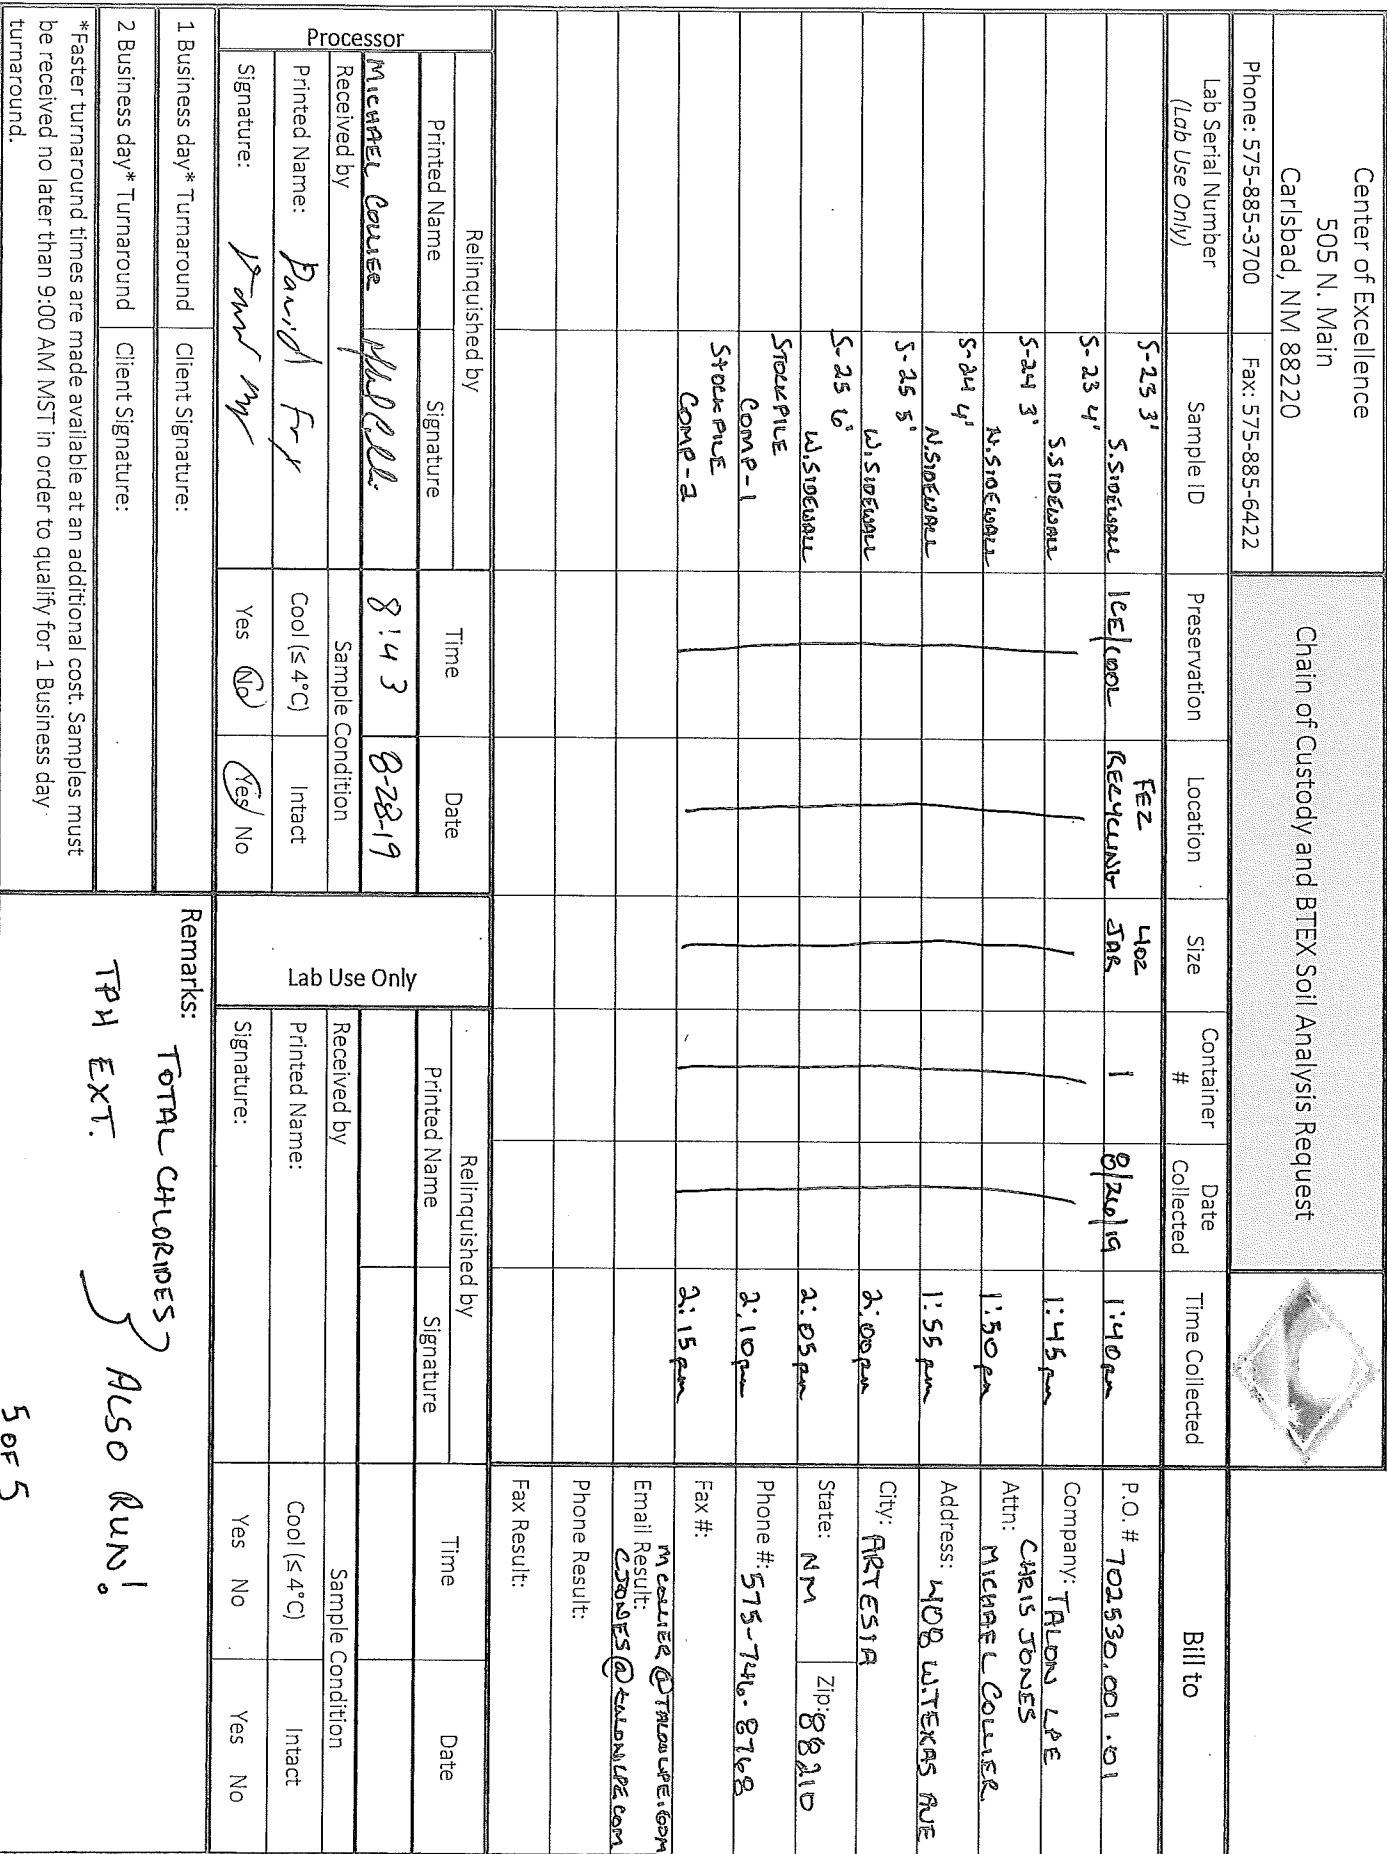 Center of Excellence
505 N. Main
Carlsbad, NM 88220
Phone: 575-885-3700 Fax: 575-885-6422
Chain of Custody and BTEX Soil Analysis Request
Bill to
Lab Serial Number (Lab Use Only) Sample ID Preservation Location Size Container # Date Collected Time Collected
S-23 3' S.SIDEWALL ICE/COOL FEZ RECYCLING 4OZ JAR 1 8/26/19 1:40pm
S-23 4' S.SIDEWALL 1:45pm
S-24 3' N.SIDEWALL 1:50pm
S-24 4' N.SIDEWALL 1:55pm
S-25 5' W.SIDEWALL 2:00pm
S-25 6' W.SIDEWALL 2:05pm
STOCKPILE COMP-1 2:10pm
STOCKPILE COMP-2 2:15pm
P.O. # 702530.001.01
Company: TALON LPE
CHRIS JONES
Attn: MICHAEL COLLIER
Address: 408 W.TEXAS AVE
City: ARTESIA
State: NM Zip: 88210
Phone #: 575-746-8768
Fax #:
MCOLLIER@TALONLPE.COM
Email Result:
CJONES@TALONLPE.COM
Phone Result:
Fax Result:
Processor
Relinquished by Time Date
Printed Name Signature
MICHAEL COLLIER 8:43 8-28-19
Received by Sample Condition
Printed Name: David Fry Cool (≤ 4°C) Intact
Signature: Yes No Yes No
Lab Use Only
Relinquished by Time Date
Printed Name Signature
Received by Sample Condition
Printed Name: Cool (≤ 4°C) Intact
Signature: Yes No Yes No
1 Business day* Turnaround Client Signature:
2 Business day* Turnaround Client Signature:
*Faster turnaround times are made available at an additional cost. Samples must
be received no later than 9:00 AM MST in order to qualify for 1 Business day
turnaround.
Remarks: TOTAL CHLORIDES
TPH EXT. } ALSO RUN!
5 OF 5